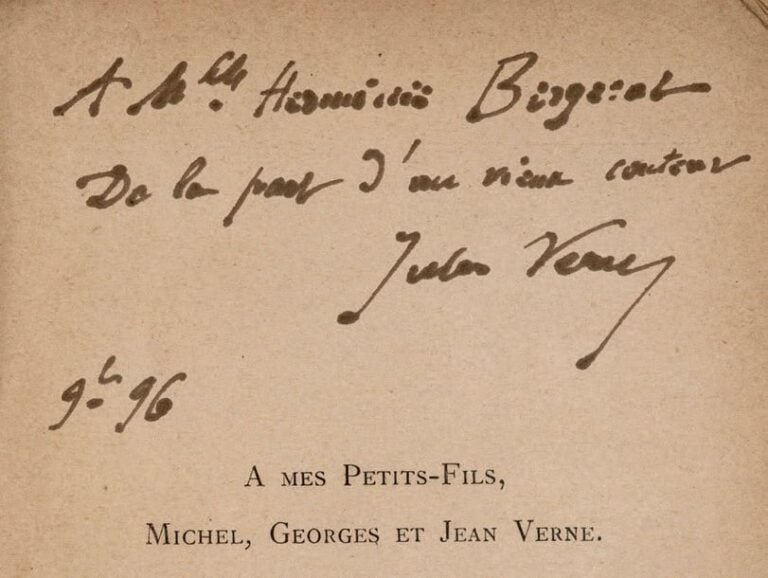 A Mlle Herminie Bergerat
De la part d'un vieux conteur
Jules Verne
9bre 96
A MES PETITS-FILS,
MICHEL, GEORGES ET JEAN VERNE.